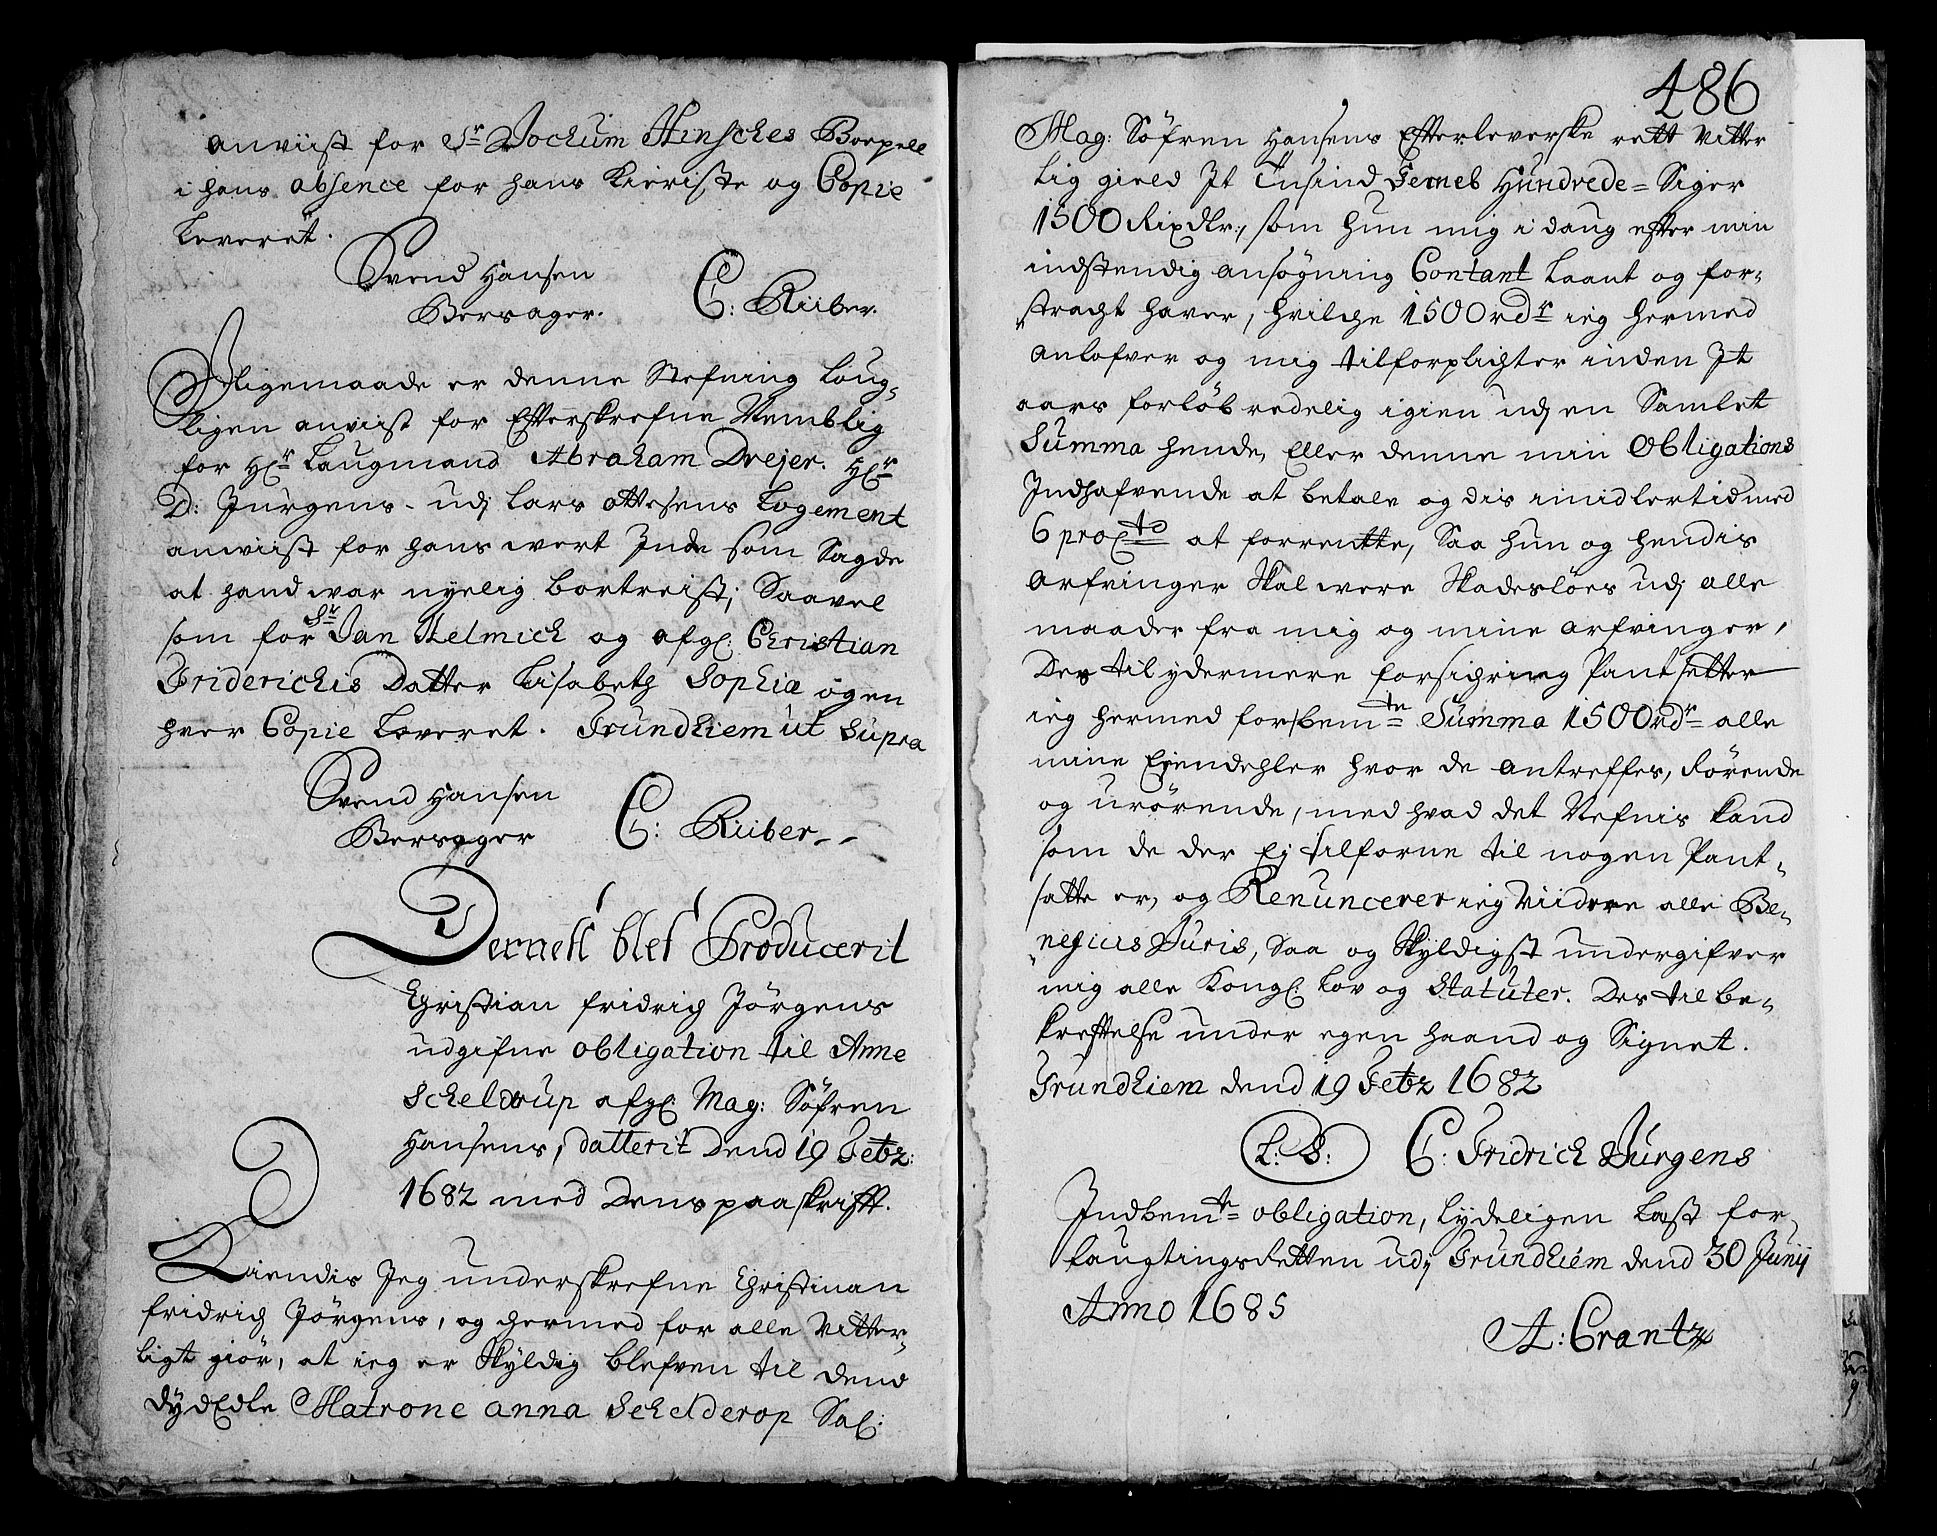 anviist for Sr Jochum Hinsches Boepell
i hans absence for hans Kieriste og Copie
Leveret.
Svend Hansen
Bersager.
C: Riiber.
J ligemaade er denne Stefning loug-
ligen anviist for Efterskrefne Nemblig
for Hr: Laugmand Abraham Drejer. Hr:
D: Jürgens. udj Lars Ottesens Logement
anviist for hans wert Inde som Sagde
at hand war nyelig bortreist; Saavel
som for Sr Jan Helmich og afgl: Christian
Friderichis Datter Lisabeth Sophia ogen
hver Copie Leveret. Trundhiem ut Supra
Svend Hansen
Bersager
C: Riiber--
Dernest blef Producerit
Christian fridrich Jörgens
udgifne obligation til Anne
Schelderup afgl: Mag: Söfren
Hansens, datterit Dend 19 Febr:
1682 med Dens paaskrifft.
Kiendis Jeg underskrefne Christian
fridrich Jörgens, og hermed for alle Vitter-
ligt giör, at ieg er skyldig blefven til dend
dydEdle Matrone anna Schelderop Sal:
486
Mag: Söfren Hansens Efterleverske rett vitter
lig gield Jt Tusind Femb Hundrede = Siger
1500 Rixdlr:, som hun mig i daug efter min
indstendig ansögning Contant laant og for-
stracht haver, hvilche 1500 rdr ieg hermed
anlofver og mig tilforplichter inden Jt
aars forlöb redelig igien udj en Samlet
Summa hende, Eller denne min Obligations
Indhafvende at betale og dis imidlertid med
6 proCto at forrentte, Saa hun og hendis
arfvinger skal were skadeslöes udj alle
maader fra mig og mine arfvinger,
Des til ydermere forsichring Pantsetter
ieg hermed forskemte Summa 1500 rdr alle
mine Ejendehler hvor de antreffes, Rörende
og urörende, med hvad det Nefnis kand
som de der Ej tilforne til nogen Pant-
satte er, og Renuncerer ieg Viidere alle Be-
neficiis Juris, Saa og skyldigst undergifver
mig alle Kongl: Lov og Statuter. Des til be-
kreftelse under egen haand og Signet.
Trundhiem dend 19 Febr 1682
L: S:
C: Fridrich Jürgens
Indbemte obligation, lydeligen læst for
Laugtingsretten udj Trundhiem dend 30 Junij
Anno 1685
A: Crantz